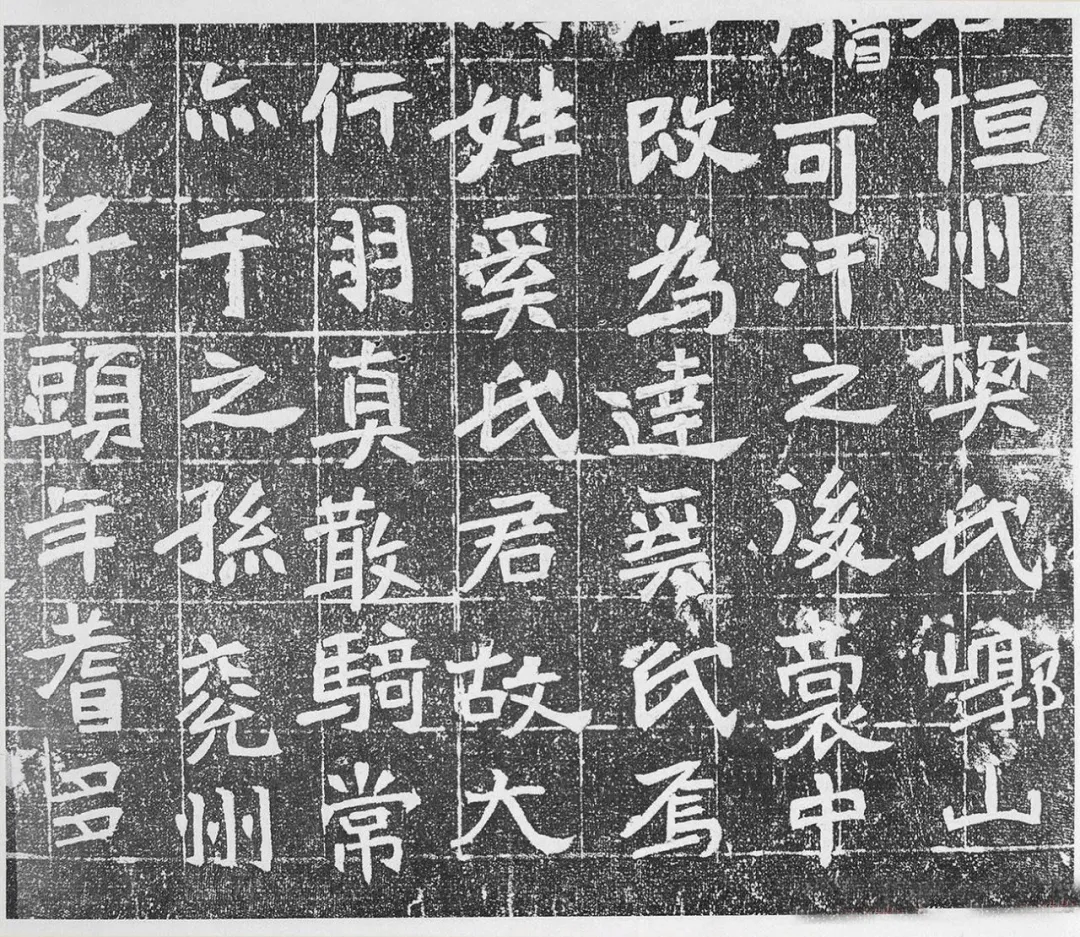 恒州樊氏崞山
可汗之後裔中
改為達奚氏焉
姓奚氏君故大
行羽真散騎常
亦干之孫兗州
之子頭年耆多